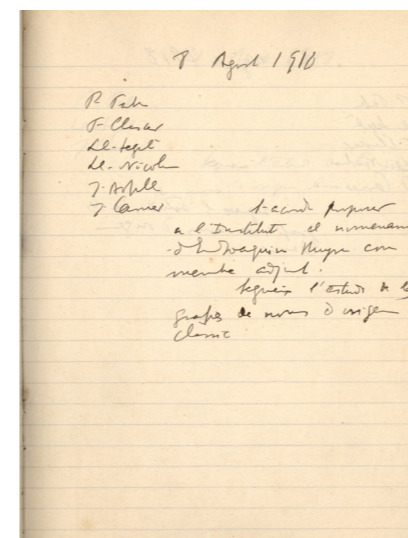 8 Agost 1918
P. Fabra
F. Clascar
Ll. Segalà
Ll. Nicolau
J.
J. Carner S'acorda proposar
a l'Institut el nomenam
d'En Joaquim Ruyra com
membre adjunt.
Segueix l'estudi de les
grafies de noms d'origen
clàssic